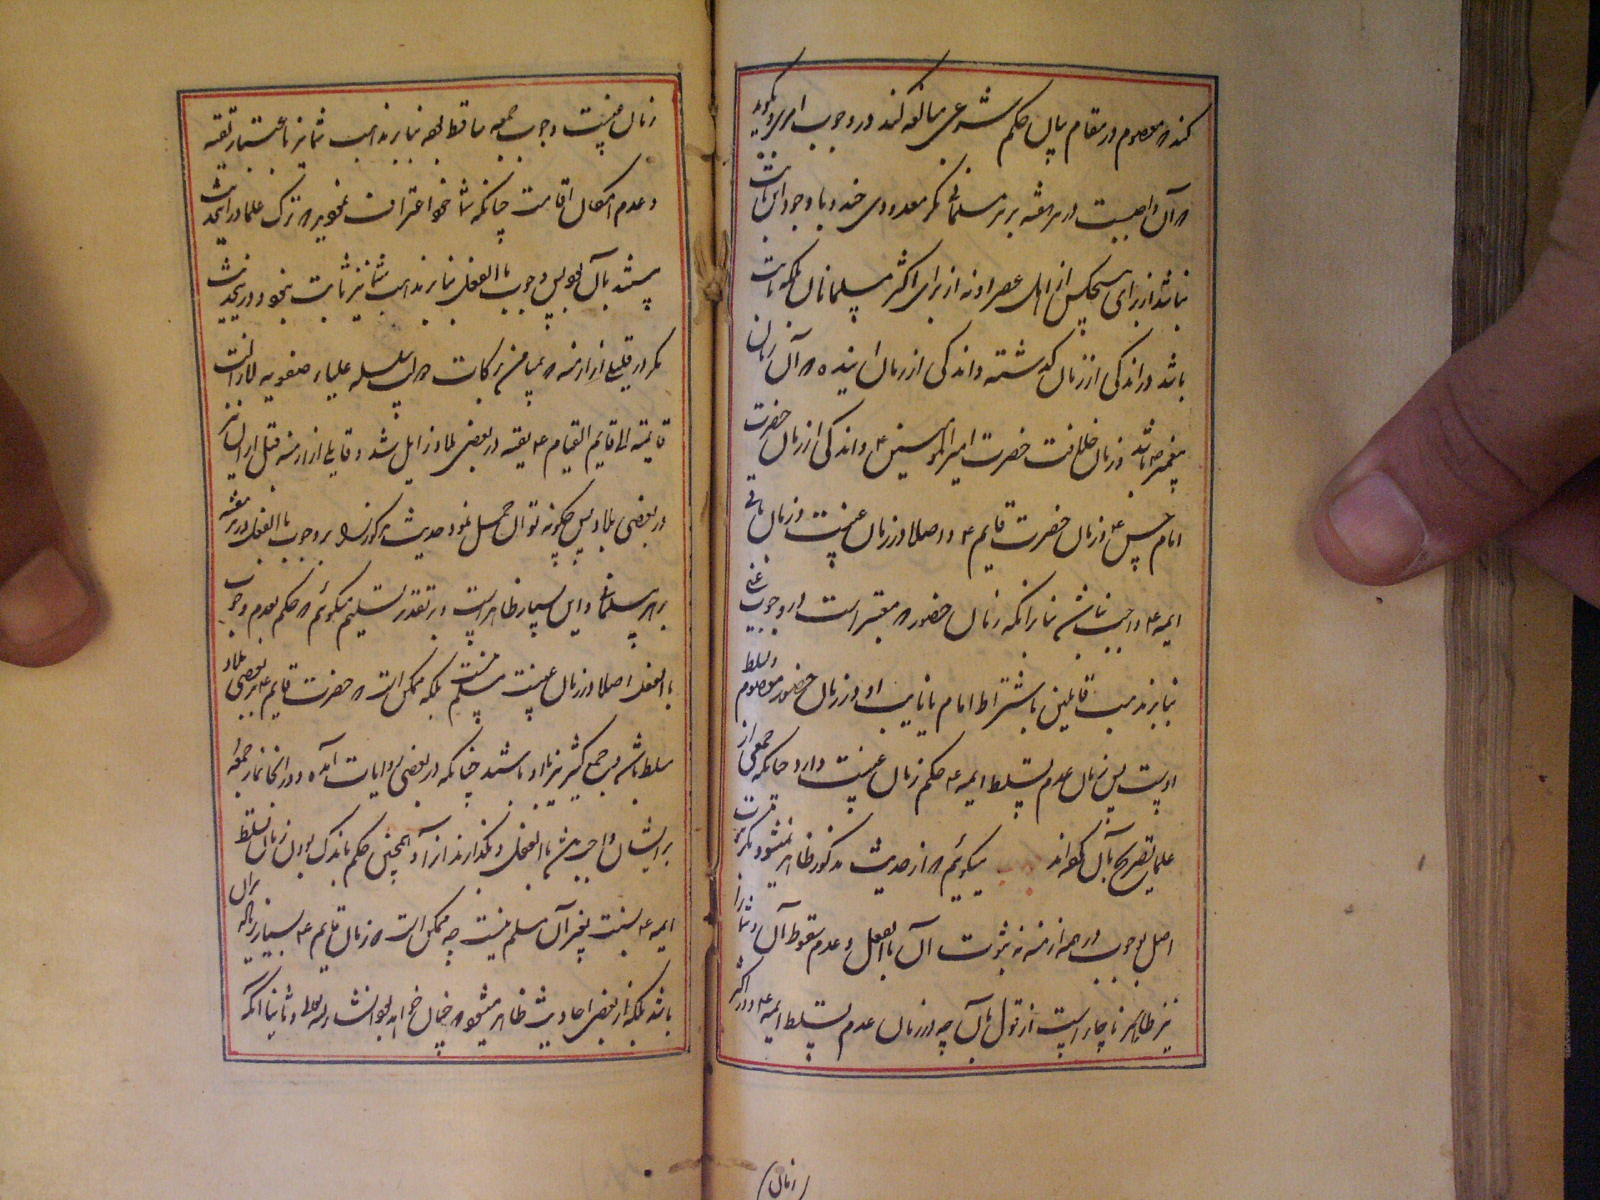 کند که معصوم در مقام بیان حکم شرعی مبالغه کند در وجوب امری و بگوید
که آن واجبست در هر هفته بر هر مسلمانی مگر معدودی چند و با وجود این ثابت
نباشد از برای هیچکس از اهل عصر او نه از برای اکثر مسلمانان بلکه ثابت
باشد در اندکی از زمان گذشته و اندکی از زمان آینده که آن زمان
پیغمبر ص باشد و زمان خلافت حضرت امیرالمؤمنین ع و اندکی از زمان حضرت
امام حسن ع و زمان حضرت قایم ع و اصلا در زمان غیبت و زمان باقی
ایمه ع واجب نباشد بنابر آنکه زمان حضور که معتبر است در وجوب عینی
بنابر مذهب قائلین باشتراط امام یا نایب او زمان حضور معصوم و تسلط
اوست پس زمان عدم تسلط ایمه ع حکم زمان غیبت دارد چنانکه جمعی از
علما تصریح بآن کرده‌اند میگوئیم که از حدیث مذکور ظاهر نمیشود مگر ثبوت
اصل وجوب در همه ازمنه نه ثبوت آن بالفعل و عدم سقوط آن و شما را
نیز ظاهرا ناچار است از قول بآن چه در زمان عدم تسلط ایمه ع و در اکثر
(زمان)
زمان غیبت وجوب جمعه ساقط بوده بنابر مذهب شما نیز باعتبار تقیه
و عدم امکان اقامت چنانکه شما خود اعتراف نمودید که ترک علما در این مدت
مستند بآن بوده پس وجوب بالفعل بنابر مذهب شما نیز ثابت نبود در این مدت
مگر در قلیلی از ازمنه که بمیامن برکات این سلسله علیاء صفویه لازالت
قایمة الی قایم القیام ع تقیه در بعضی بلاد زایل شد و قلیلی از ازمنه قبل از آن نیز
در بعضی بلاد پس چگونه توان حمل نمود حدیث مذکور را بر وجوب بالفعل در هر هفته
بر هر مسلمانی و این بسیار ظاهر است و بر تقدیر تسلیم میگوئیم که حکم بعدم وجوب
بالفعل اصلا در زمان غیبت مسلم نیست بلکه ممکن است که حضرت قایم ع بر بعضی بلاد
مسلط باشد و جمع کثیر نیز با او باشند چنانکه در بعضی روایات آمده و در آنجا نماز جمعه
بر ایشان واجب باشد بالفعل و بگذارند آنرا و همچنین حکم باندک بودن زمان تسلط
ایمه ع نسبت بغیر آن مسلم نیست چه ممکن است که زمان قایم ع بسیار زیاده بر آن
باشد بلکه از بعضی احادیث ظاهر میشود که چنان خواهد بود انشاء الله تعالی و ثانیا آنکه